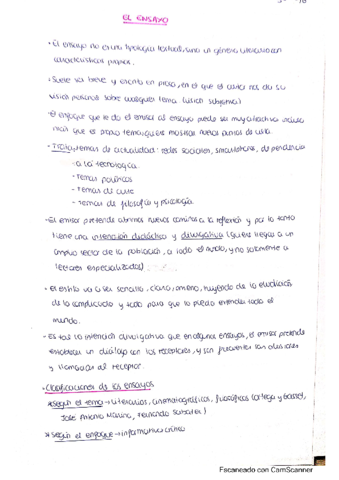 EL ENSAYO
• El ensayo no es una tipología textual, sino un género literario con
características propias.
• Suele ser breve y escrito en prosa, en el que el autor nos da su
visión personal sobre cualquier tema (visión subjetiva)
• El enfoque que le da el emisor al ensayo puede ser muy significativo incluso
más que el propio tema, quiere mostrar nuevos puntos de vista.
• Trata, temas de actualidad: redes sociales, smartphones, dependencia
a la tecnología.
- Temas políticos
- Temas de cine
- Temas de filosofía y psicología.
- El emisor pretende abrirnos nuevos caminos a la reflexión y por lo tanto
tiene una intención didáctica y divulgativa (quiere llegar a un
amplio sector de la población, a todo el mundo, y no solamente a
lectores especializados)
• El estilo va a ser sencillo, claro, ameno, huyendo de la erudición
de la complicación y todo para que lo pueda entender todo el
mundo.
• Es tal la intención divulgativa que en algunos ensayos, el emisor pretende
establecer un diálogo con los receptores, y son frecuentes las alusiones
y llamadas al receptor.
• Clasificaciones de los ensayos
* según el tema → literarios, cinematográficos, filosóficos (Ortega y Gasset,
José Antonio Marina, Fernando Savater)
* según el enfoque → informativo crítico
Escaneado con CamScanner